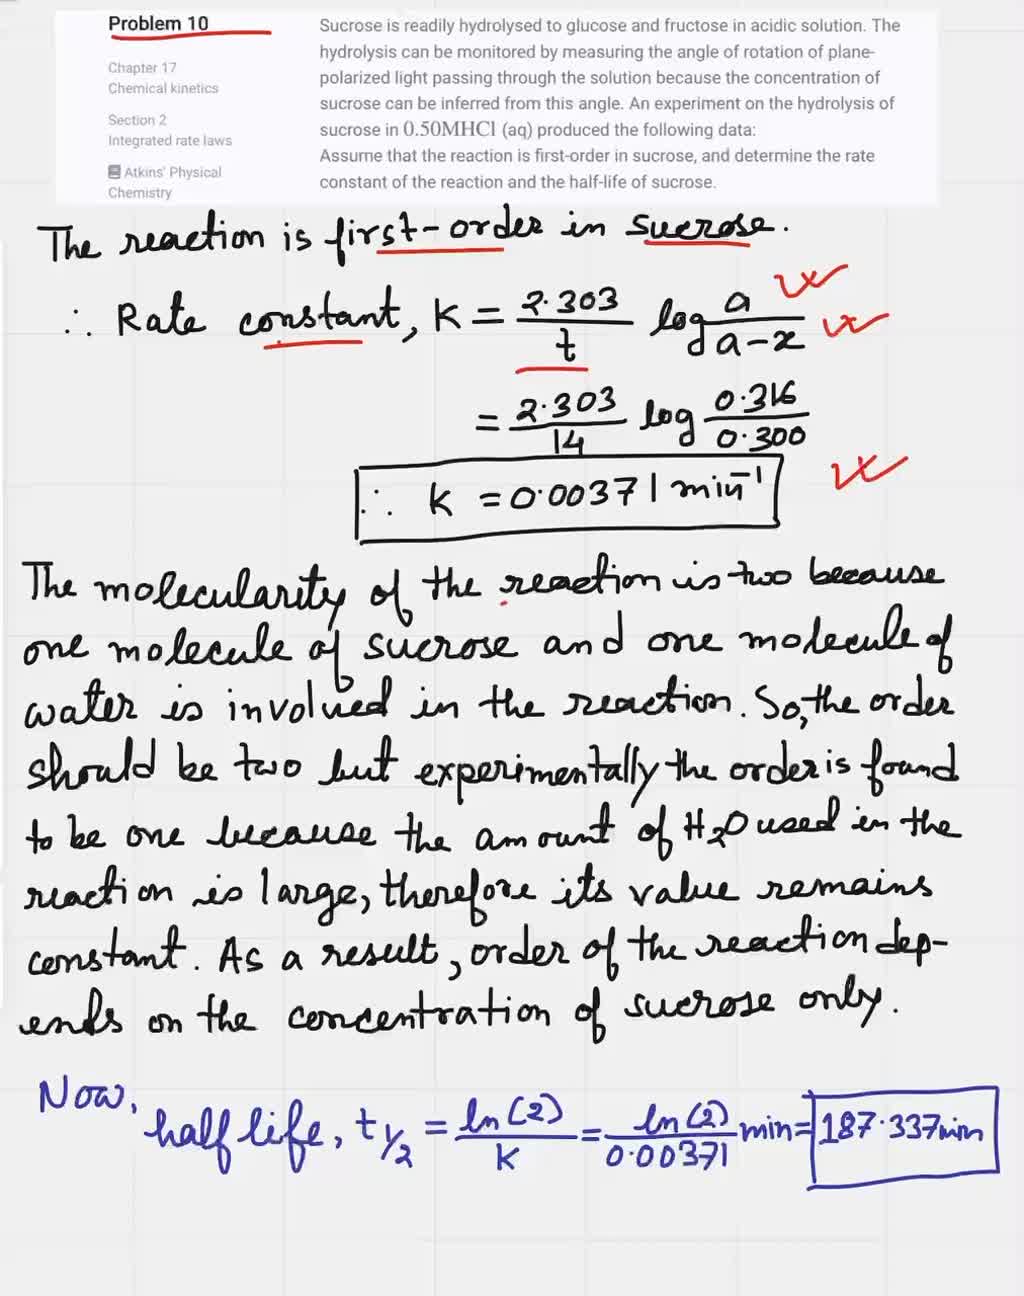 Problem 10
Chapter 17
Chemical kinetics
Section 2
Integrated rate laws
Atkins' Physical
Chemistry
Sucrose is readily hydrolysed to glucose and fructose in acidic solution. The
hydrolysis can be monitored by measuring the angle of rotation of plane-
polarized light passing through the solution because the concentration of
sucrose can be inferred from this angle. An experiment on the hydrolysis of
sucrose in 0.50MHCl (aq) produced the following data:
Assume that the reaction is first-order in sucrose, and determine the rate
constant of the reaction and the half-life of sucrose.
The reaction is first-order in sucrose.
∴ Rate constant, K = 2.303/t log a/a-x
= 2.303/14 log 0.316/0.300
∴ K = 0.00371 min⁻¹
The molecularity of the reaction is two because
one molecule of sucrose and one molecule of
water is involved in the reaction. So, the order
should be two but experimentally the order is found
to be one because the amount of H₂O used in the
reaction is large, therefore its value remains
constant. As a result, order of the reaction dep-
ends on the concentration of sucrose only.
Now,
half life, t½ = ln(2)/K = ln(2)/0.00371 min = 187.337 min